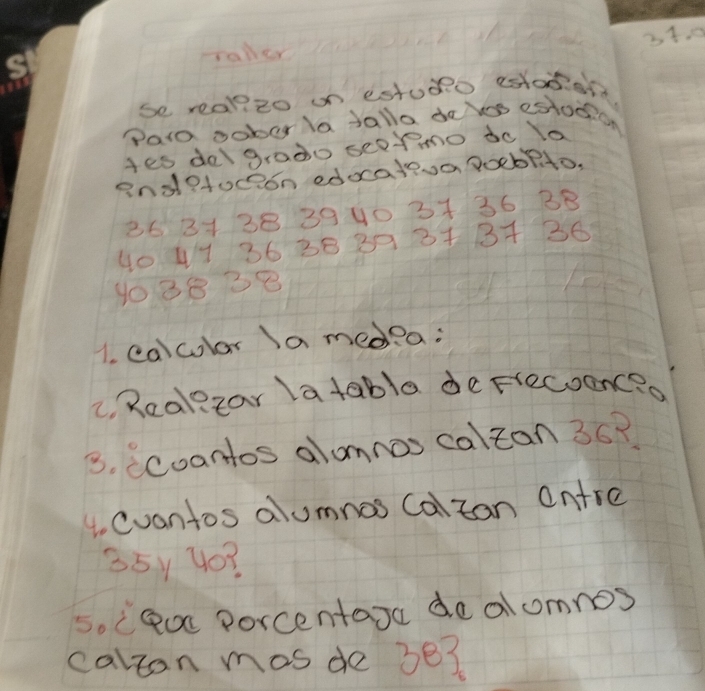 Taller
37.0
se realizo un estudio estadisti
Para saber la talla de los estudian
tes del grado septimo de la
institucion educativa pueblito.
36 37 38 39 40 37 36 38
40 41 36 38 39 37 37 36
40 38 38
1. calcular la media:
2. Realizar la tabla de Frecuencia
3. ¿cuantos alumnos calzan 36?
4. Cuantos alumnos calzan entre
35 y 40?
5. ¿que porcentaje de alumnos
calzan mas de 38?